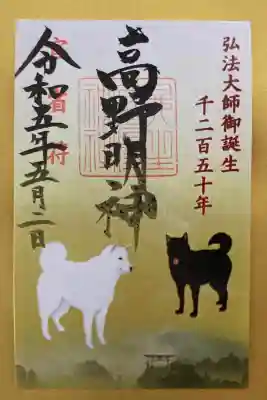 弘法大師御誕生
千二百五十年
高野明神
官省符
令和五年五月二日